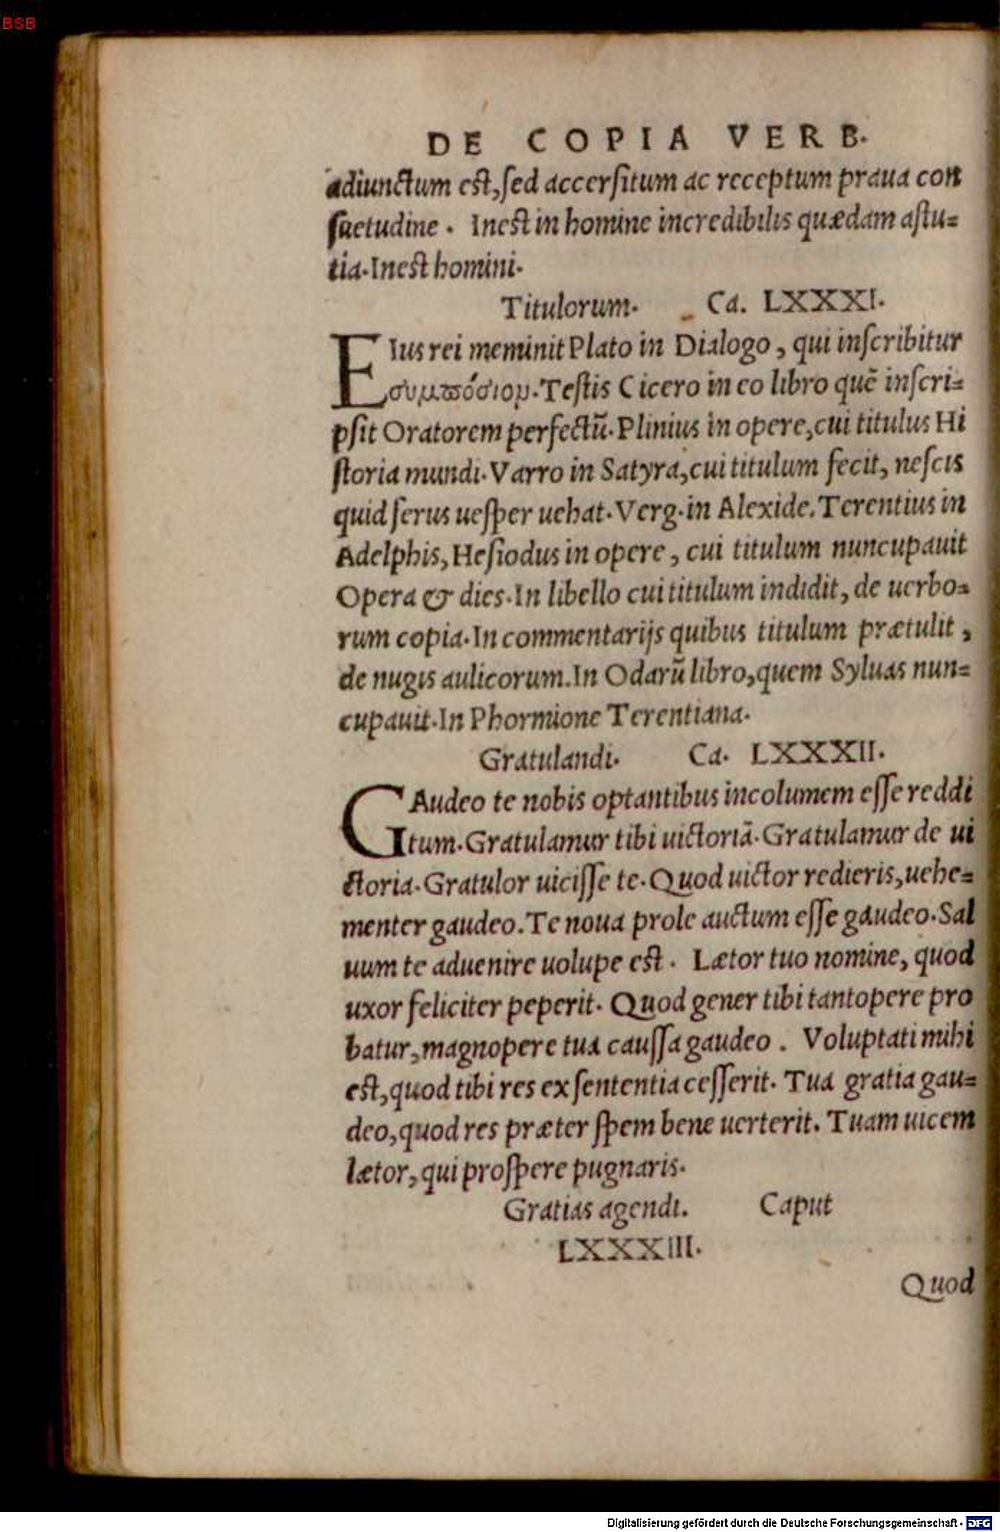 BSB
DE COPIA VERB.
adiunctum est, sed accersitum ac receptum praua con
suetudine. Inest in homine incredibilis quædam astu=
tia. Inest homini.
Titulorum. Ca. LXXXI.
EIus rei meminit Plato in Dialogo, qui inscribitur
συμπόσιομ. Testis Cicero in eo libro quẽ inscri=
psit Oratorem perfectũ. Plinius in opere, cui titulus Hi
storia mundi. Varro in Satyra, cui titulum fecit, nescis
quid serus uesper uehat. Verg. in Alexide. Terentius in
Adelphis, Hesiodus in opere, cui titulum nuncupauit
Opera & dies. In libello cui titulum indidit, de uerbo=
rum copia. In commentarijs quibus titulum prætulit,
de nugis aulicorum. In Odarũ libro, quem Syluas nun=
cupauit. In Phormione Terentiana.
Gratulandi. Ca. LXXXII.
GAudeo te nobis optantibus incolumem esse reddi
tum. Gratulamur tibi uictoriã. Gratulamur de ui
ctoria. Gratulor uicisse te. Quod uictor redieris, uehe=
menter gaudeo. Te noua prole auctum esse gaudeo. Sal
uum te aduenire uolupe est. Lætor tuo nomine, quod
uxor feliciter peperit. Quod gener tibi tantopere pro
batur, magnopere tua caussa gaudeo. Voluptati mihi
est, quod tibi res ex sententia cesserit. Tua gratia gau=
deo, quod res præter spem bene uerterit. Tuam uicem
lætor, qui prospere pugnaris.
Gratias agendi. Caput
LXXXIII.
Quod
Digitalisierung gefördert durch die Deutsche Forschungsgemeinschaft - DFG